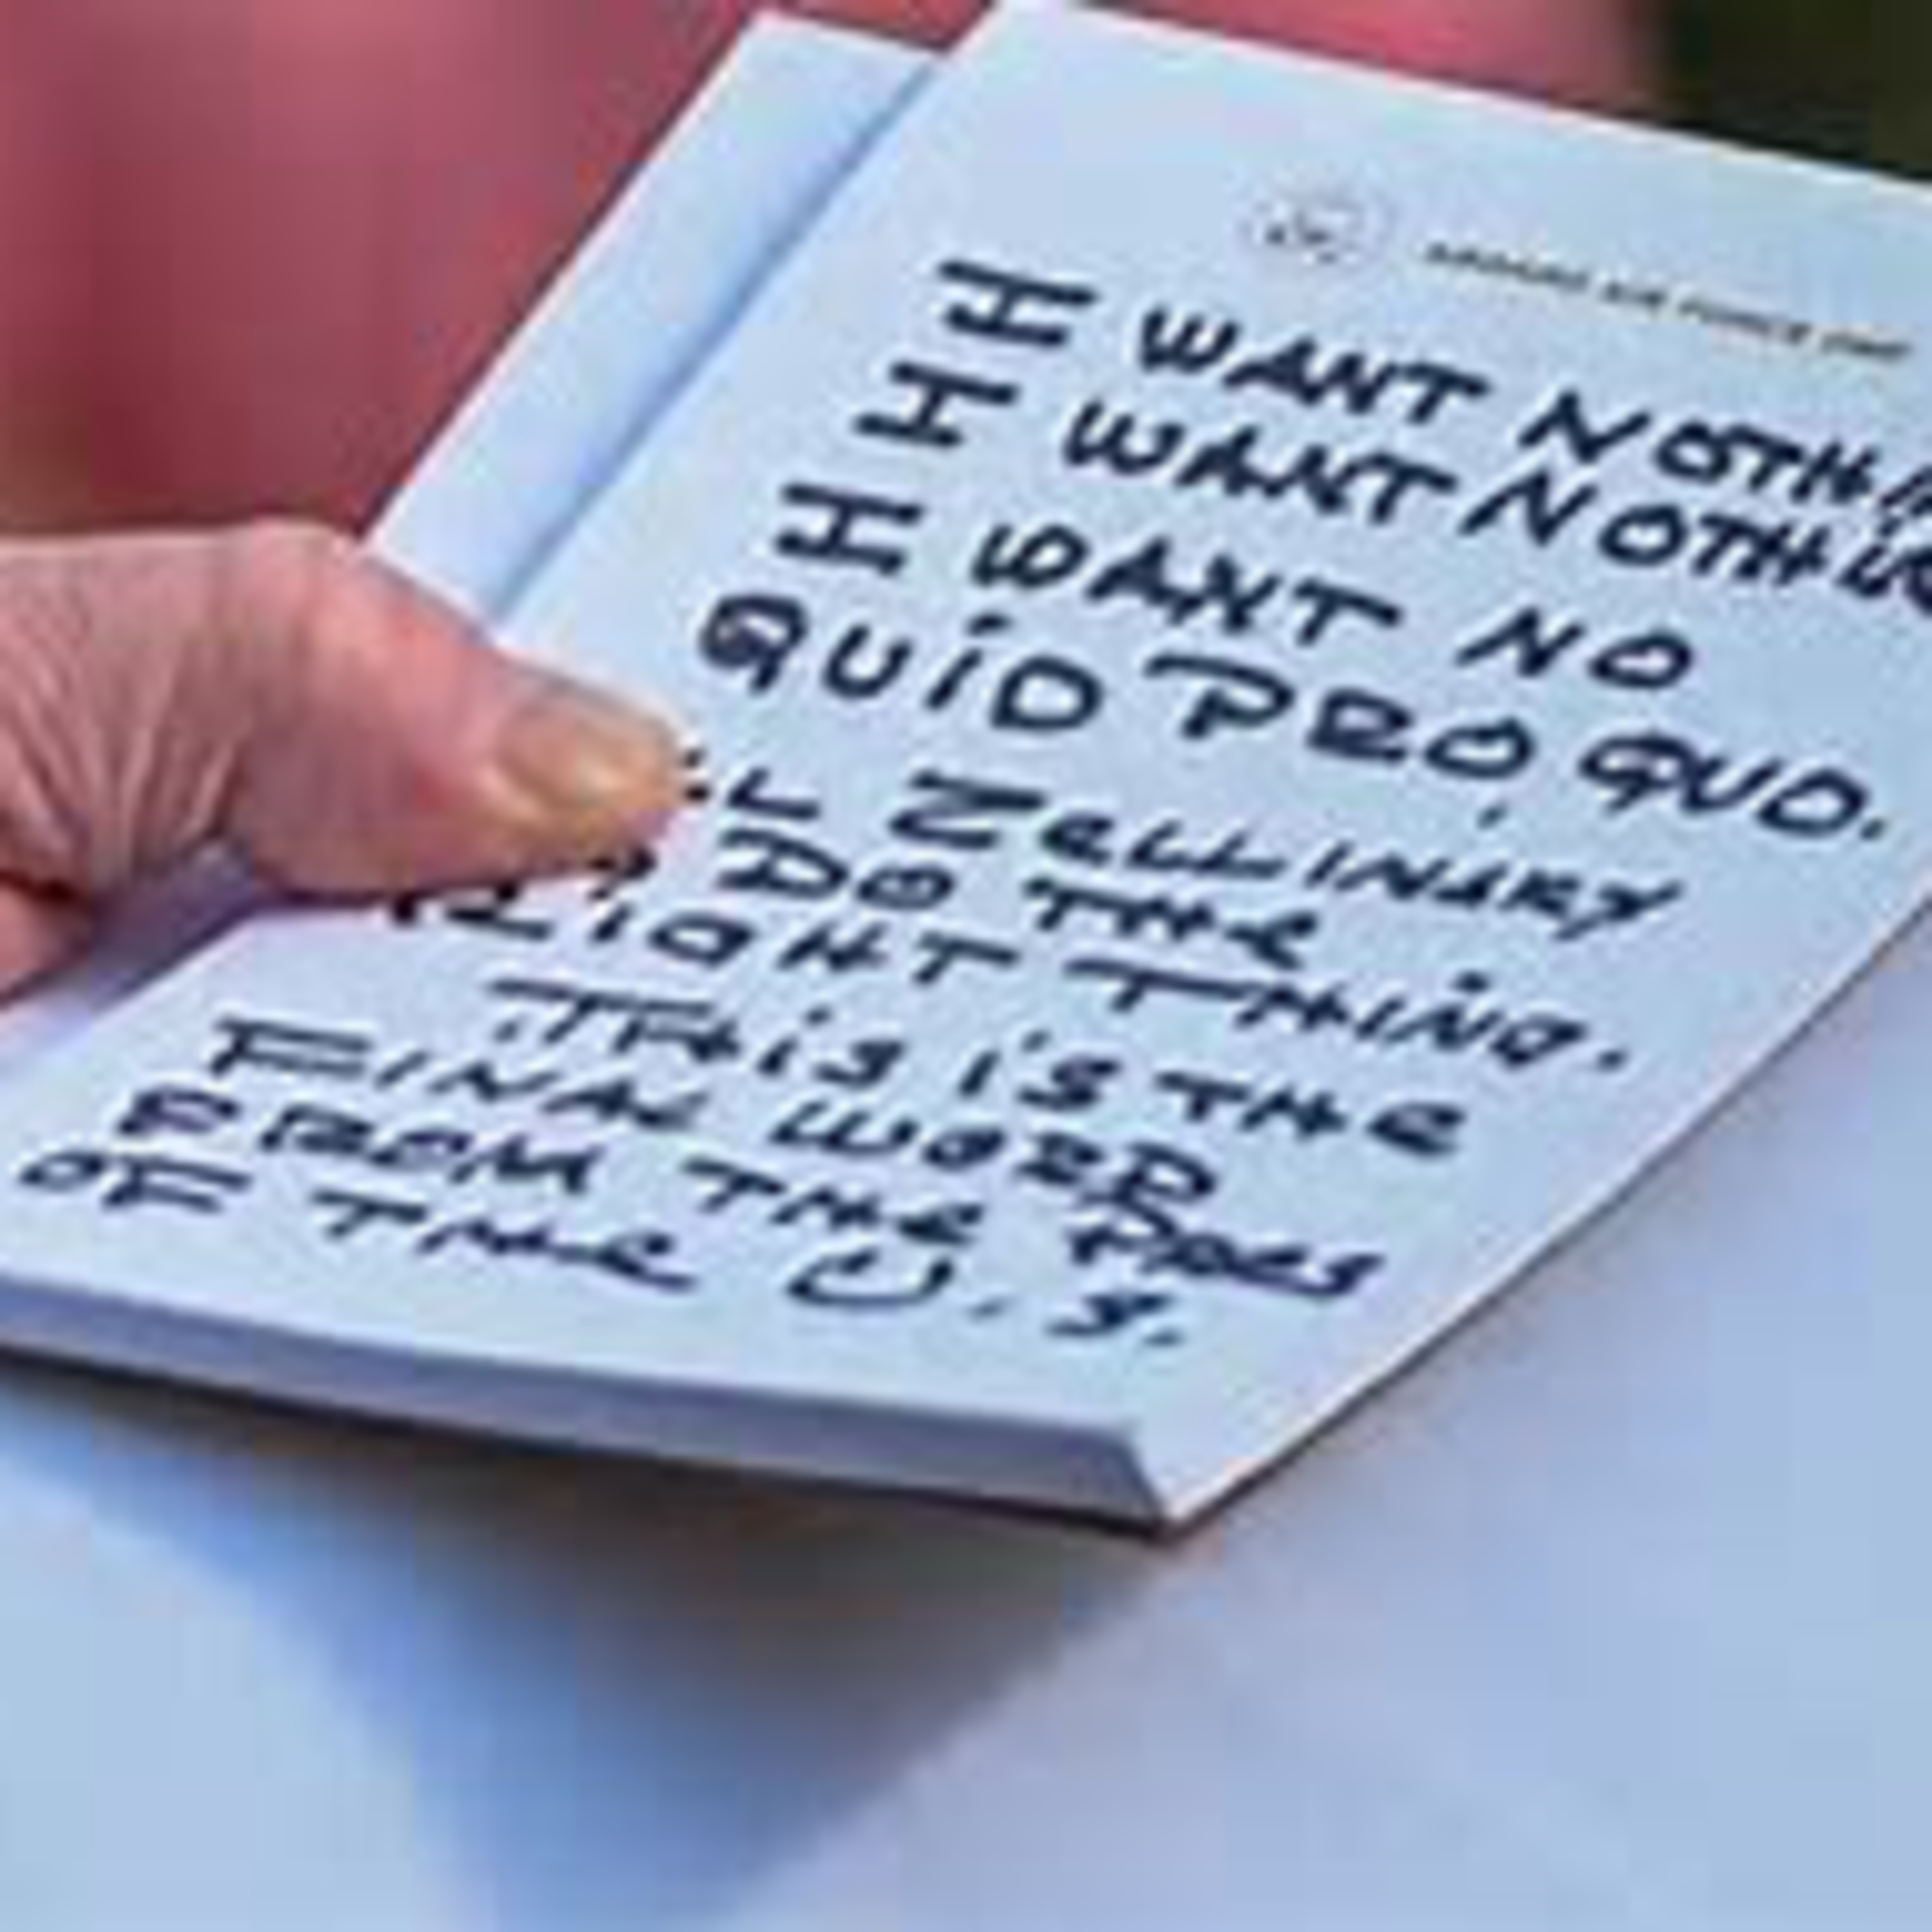 ABOARD AIR FORCE ONE
I WANT NOTHIN
I WANT NOTHIN
I WANT NO
QUID PRO QUO.
ZELLINSKY
DO THE
RIGHT THING.
THIS IS THE
FINAL WORD
FROM THE PRES
OF THE U.S.